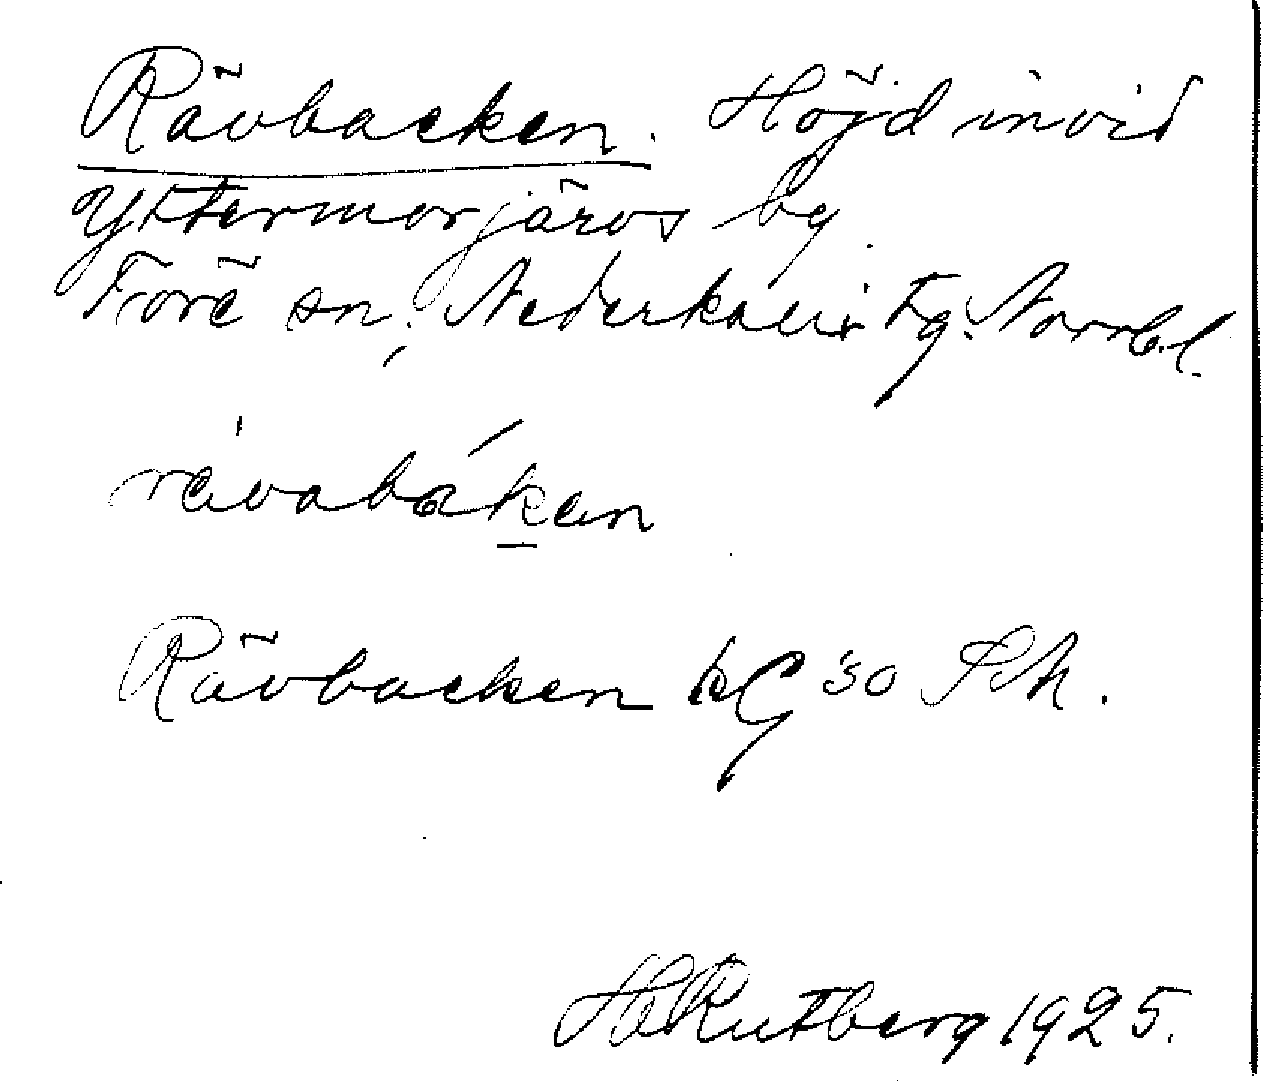 Rävbacken. Höjd invid
Yttermorjärvs by
Töre sn, Nederkalix tg. Norrb.l.
rävabákan
Rävbacken kG '30
H Rutberg 1925.